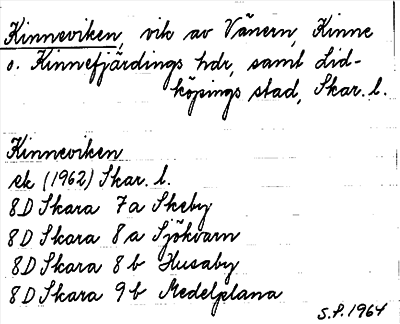 Kinneviken, vik av Vänern, Kinne
o. Kinnefjärdings hdr, samt Lid-
köpings stad, Skar. l.
Kinneviken
ek (1962) Skar. l.
8D Skara 7a Skeby
8D Skara 8a Sjökvarn
8D Skara 8b Husaby
8D Skara 9b Medelplana
S.P. 1964